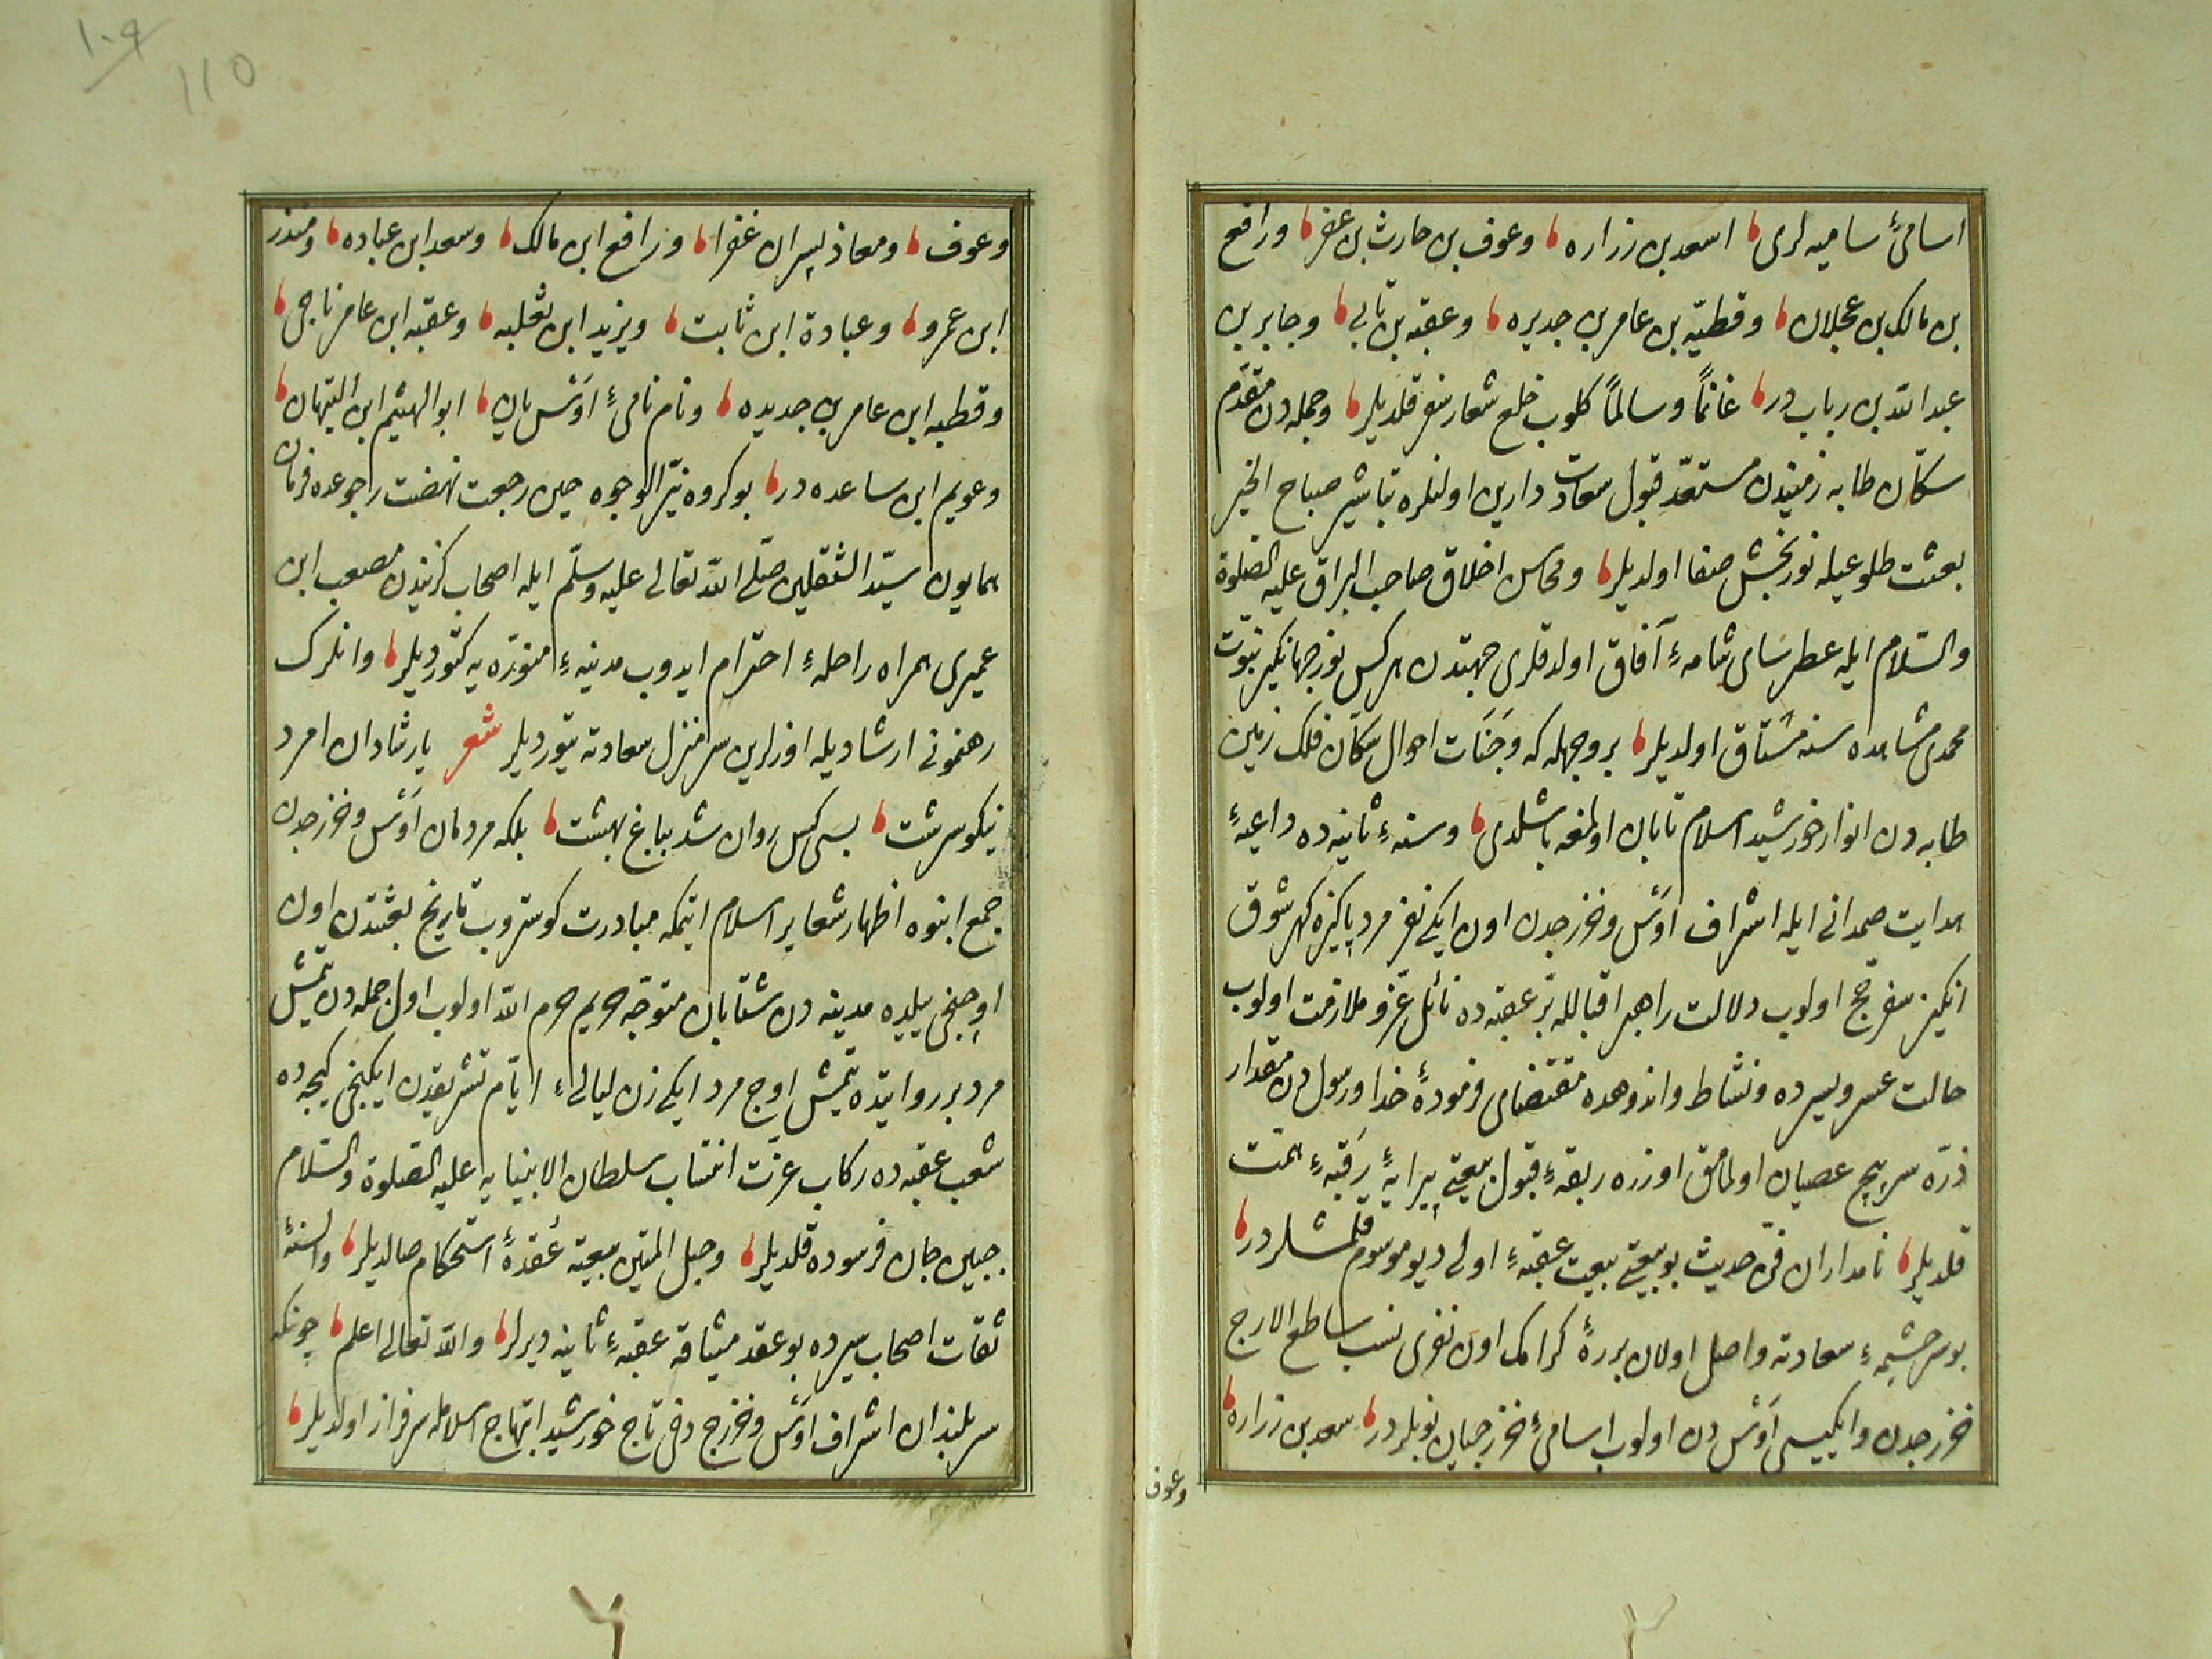 اسامیٔ سامیه‌لری اسعد بن زراره وعوف بن حارث بن عفر ورافع
بن مالک بن عجلان وقطیّه بن عامر بن جدیره وعقبه بن تابی وجابر بن
عبد الله بن رباب در غانماً وسالماً کلوب خلع شعار سفر قلدیلر وجمله‌دن مقدّم
سکّان طابه زمیندن مستعدّ قبول سعادت دارین اولنلره تباشیر صباح الخیر
بعثت طلوعیله نور بخش صفا اولدیلر ومحاسن اخلاق صاحب البراق علیه الصلوة
والسّلام ایله عطرسای شامهٔ آفاق اولدقلری جهتدن هر کس نور جهانگیر نبوّت
محمدی مشاهده سنه مشتاق اولدیلر بر وجهله که وَجَنَات احوال سکّان فلک زمین
طابه‌دن انوار خورشید اسلام تابان اولمغه باشلدی وسنهٔ ثانیه‌ده داعیهٔ
هدایت صمدانی ایله اشراف اَوْس وخزرجدن اون ایکی نفر مرد پاکیزه کهر شوق
انکیز سفر حج اولوب دلالت راهبر اقبالله بر عقبه‌ده نائل عزّ وملازمت اولوب
حالت عسر ویسرده ونشاط واندوهده مقتضای فرمودهٔ خدا ورسولدن مقدار
ذرّه سرپیچ عصیان اولمامق اوزره ربقهٔ قبول بیعتی پیرایهٔ رَقبهٔ همّت
قلدیلر نامداران فنّ حدیث بو بیعتی بیعت عقبهٔ اولی دیو موسوم قلمشلردر
بو سرچشمهٔ سعادته واصل اولان بررهٔ کرامک اون نفری نسب ساطع الارج
خزرجدن وایکیسی اَوْس‌دن اولوب اسامیٔ خزرجیان بونلردر سعد بن زراره
وعوف
وعوف ومعاذ پسران غفرا ورافع ابن مالک وسعد ابن عباده ومنذر
ابن عمرو وعبادة ابن ثابت ویزید ابن ثعلبه وعقبه ابن عامر ناجی
وقطبه ابن عامر بن جدیده ونام نامیٔ اَوْس یان ابو الهیثم ابن التیّهان
وعویم ابن ساعده در بو کروه نیّر الوجوه حین رجعت نهضت راجوعده فرمان
همایون سیّد الثقلین صلّی الله تعالی علیه وسلّم ایله اصحاب کزیندن مصعب ابن
عمیری همراه راحلهٔ احترام ایدوب مدینهٔ منوّره‌یه کتوردیلر وانلرک
رهنمونی ارشادیله اوزلرین سرمنزل سعادته یتوردیلر شعر یار شادان امرد
نیکو سرشت بسی کس روان شد بباغ بهشت بلکه مردمان اَوْس وخزرجدن
جمع انبوه اظهار شعایر اسلام ایتمکه مبادرت کوستروب تاریخ بعثتدن اون
اوچنجی ییلده مدینه‌دن شتابان متوجّه حریم حرم الله اولوب اول جمله‌دن یتمش
مرد بر روایتده یتمش اوج مرد ایکی زن لیالیٔ ایّام تشریقدن ایکنجی کیجه‌ده
شعب عقبه‌ده رکاب عزّت انتساب سلطان الانبیایه علیه الصلوة والسّلام
جبین جان فرسوده قلدیلر وحبل المتین بیعته عُقدهٔ استحکام صالدیلر والسنهٔ
ثقات اصحاب سیرده بو عقد میثاقه عقبهٔ ثانیه دیرلر والله تعالی اعلم چونکه
سربلندان اشراف اَوْس وخزرج دخی تاج خورشید ابتهاج اسلامله سرفراز اولدیلر
١٠٩
110